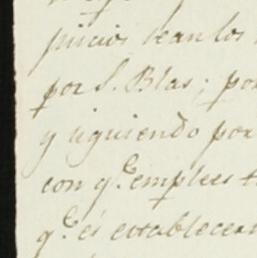 juicios sean los
por S. Blas; por
y siguiendo por
con q.e emplees
q.e és establecer